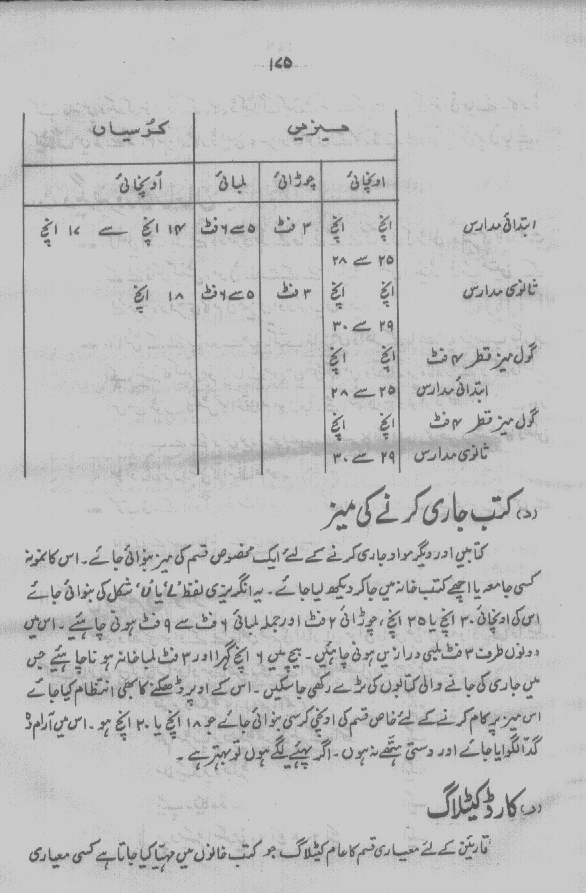 ۱۷۵
میزیں کرسیاں
اونچائی چوڑائی لمبائی اونچائی
ابتدائی مدارس انچ انچ ۳ فٹ ۵ سے ۶ فٹ ۱۴ انچ سے ۱۷ انچ
۲۵ سے ۲۸
ثانوی مدارس انچ انچ ۳ فٹ ۵ سے ۶ فٹ ۱۸ انچ
۲۹ سے ۳۰
گول میز قطر ۴ فٹ انچ انچ
ابتدائی مدارس ۲۵ سے ۲۸
گول میز قطر ۴ فٹ انچ انچ
ثانوی مدارس ۲۹ سے ۳۰
(د) کتب جاری کرنے کی میز
کتابیں اور دیگر مواد جاری کرنے کے لئے ایک مخصوص قسم کی میز بنوائی جائے۔ اس کا نمونہ
کسی جامعہ یا اچھے کتب خانہ میں جا کر دیکھ لیا جائے۔ یہ انگریزی لفظ شکل کی بنوائی جائے
اس کی اونچائی ۳۰ انچ یا ۳۵ انچ، چوڑائی ۲ فٹ اور جملہ لمبائی ۶ فٹ سے ۹ فٹ ہونی چاہئیے۔ اس میں
دونوں طرف ۳ فٹ لمبی درازیں ہونی چاہئیں۔ بیچ میں ۶ انچ گہرا اور ۳ فٹ لمبا خانہ ہونا چاہئیے جس
میں جاری کی جانے والی کتابوں کی ٹرے رکھی جا سکیں۔ اس کے اوپر ڈھکنے کا بھی انتظام کیا جائے
اس میز پر کام کرنے کے لئے خاص قسم کی اونچی کرسی بنوائی جائے جو ۱۸ انچ یا ۳۰ انچ ہو۔ اس میں آرام دہ
گدا لگوایا جائے اور دستی ہتھے نہ ہوں۔ اگر پہئے لگے ہوں تو بہتر ہے۔
کارڈ کیٹلاگ
قارئین کے لئے معیاری قسم کا عام کیٹلاگ جو کتب خانوں میں مہیا کیا جاتا ہے کسی معیاری